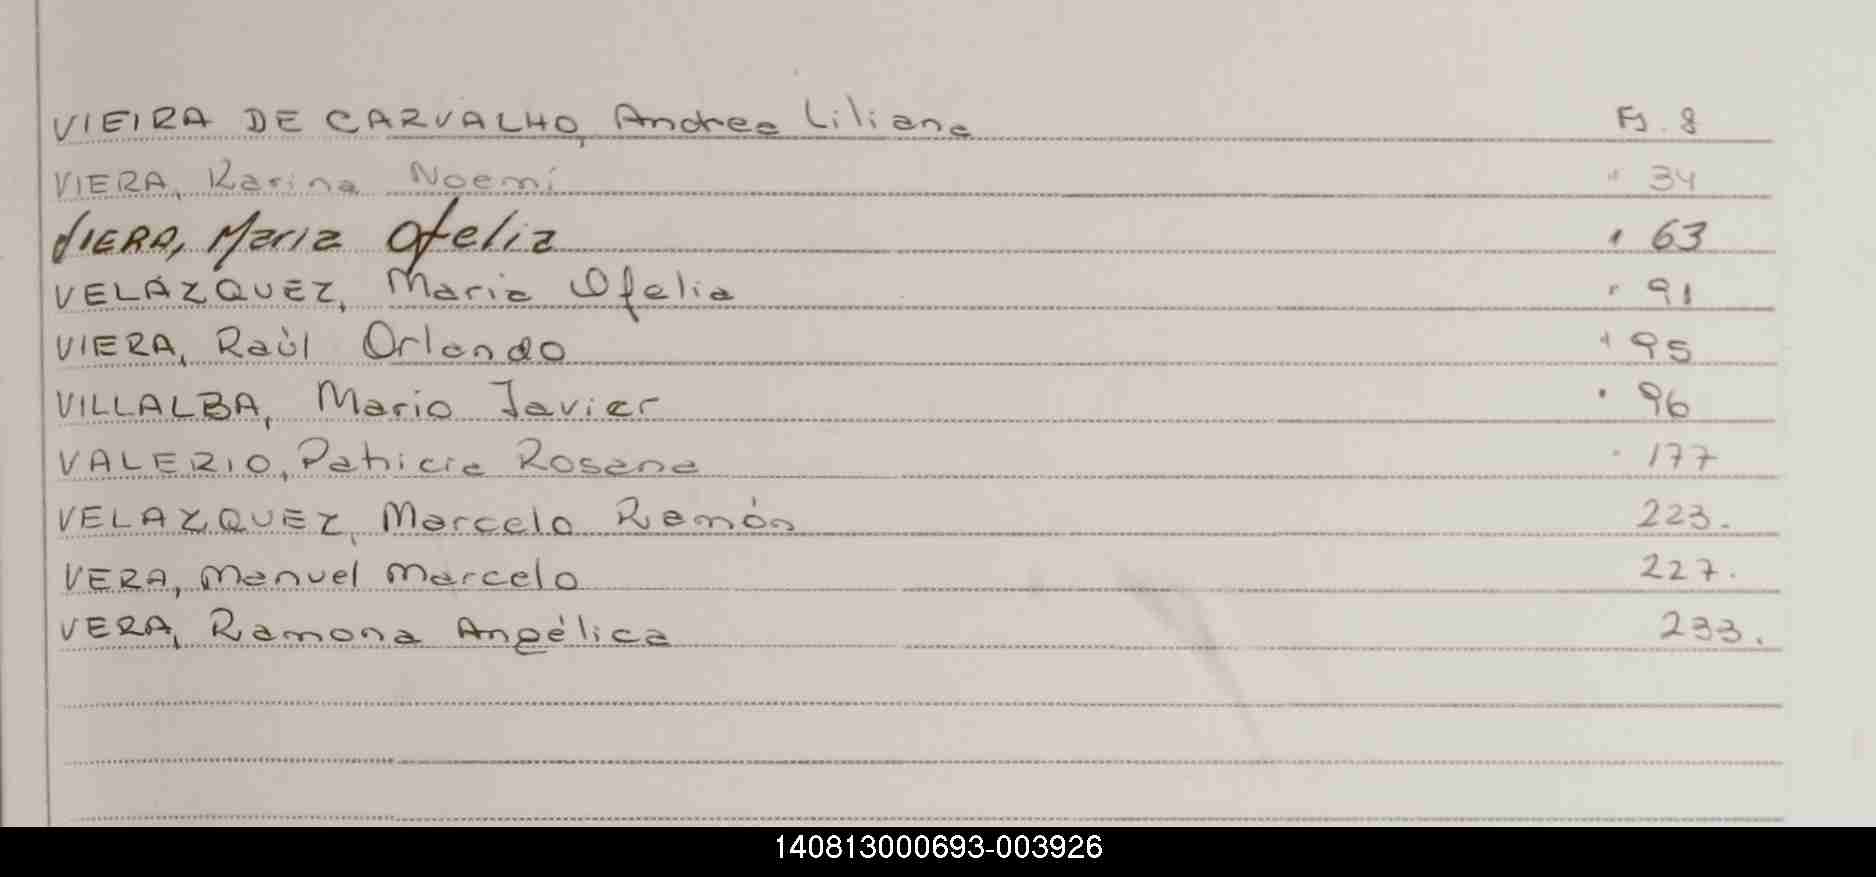 VIEIRA DE CARVALHO, Andrea Liliana Fs. 8
VIERA, Karina Noemí " 34
VIERA, Maria Ofelia " 63
VELÁZQUEZ, Maria Ofelia " 91
VIERA, Raùl Orlando " 95
VILLALBA, Mario Javier " 96
VALERIO, Patricia Rosana " 177
VELAZQUEZ, Marcelo Ramón 223.
VERA, Manuel Marcelo 227.
VERA, Ramona Angélica 233.
140813000693-003926